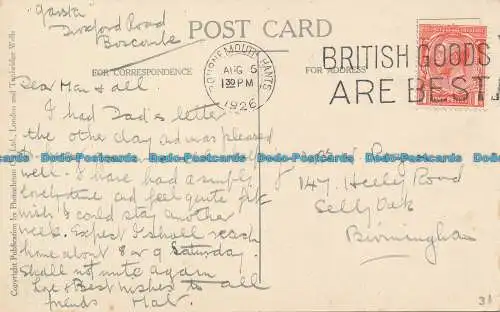 "Garsta"
Road
Boscombe
POST CARD
FOR CORRESPONDENCE
FOR ADDRESS
BOURNEMOUTH. HANTS
AUG 5
1 30 PM
1926
BRITISH GOODS
ARE BEST
Dear Mar & all.
I had Dad's letter
the other day and was pleased
Dodo-Postcards Dodo-Postcards Dodo-Postcards Dodo-Postcards Dodo-Postcards Dodo-Postcards
well. I have had a simply
lovely time and feel quite fit
wish I could stay another
week. Expect I shall reach
home about 8 or 9 Saturday.
Shall not write again
Love & Best wishes to all
friends
147 Heeley Road
Selly Oak
Birmingham
Copyright Publication by Photochrom Co., Ltd., London and Tunbridge Wells